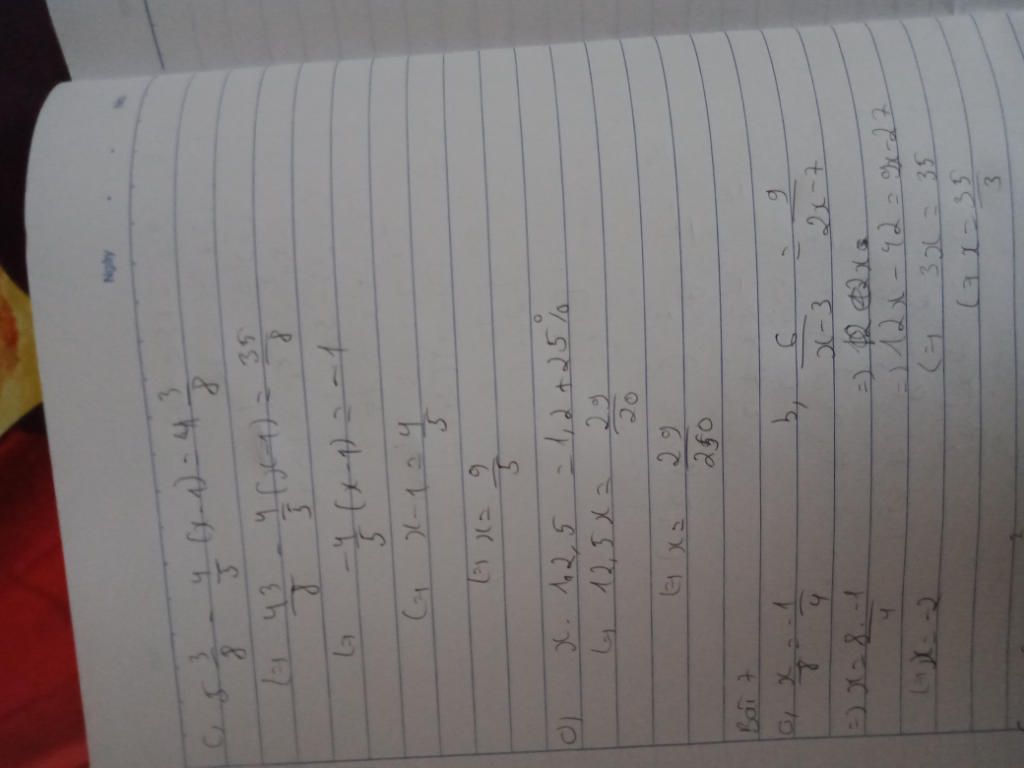 Ngày
No.
c, 5 3/8 - 4/5 (x-1) = 4 3/8
(=) 43/8 - 4/5 (x-1) = 35/8
(=) -4/5 (x-1) = -1
(=) x-1 = 4/5
(=) x = 9/5
d) x. 12,5 = 1,2 + 25%
(=) 12,5x = 29/20
(=) x = 29/250
Bài 7
a, x/8 = -1/4
=) x = 8.-1/4
(=) x = -2
b, 6/x-3 = 9/2x-7
=) 12x - 42 = 9x-27
(=) 3x = 35
(=) x = 35/3